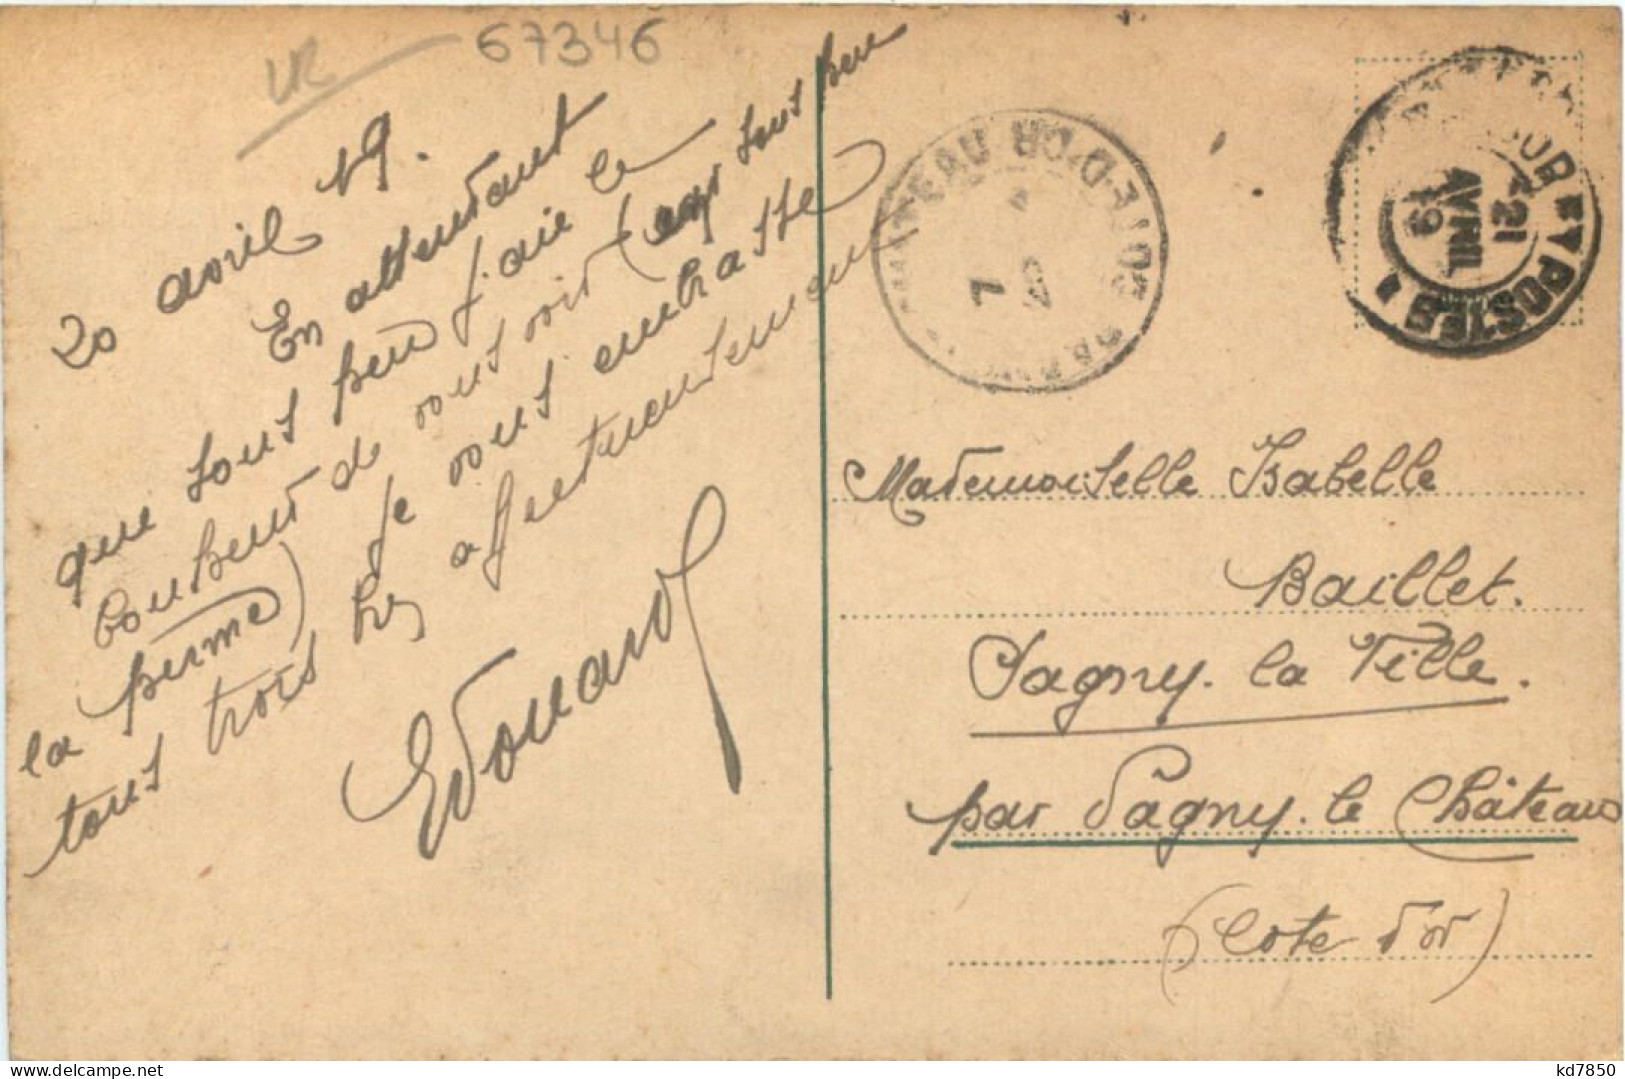 67346
20 avril 19.
En attendant
que sous peu j'aie le
bonheur de vous voir (car sous peu
la perme) je vous embrasse
tous trois bien affectueusement
Edouard
CHATEAU COTE-D'OR
TRESOR ET POSTES
21
AVRIL
19
Mademoiselle Isabelle
Baillet.
Pagny. la Ville.
par Pagny. le Château
(Cote d'or)
kd7850